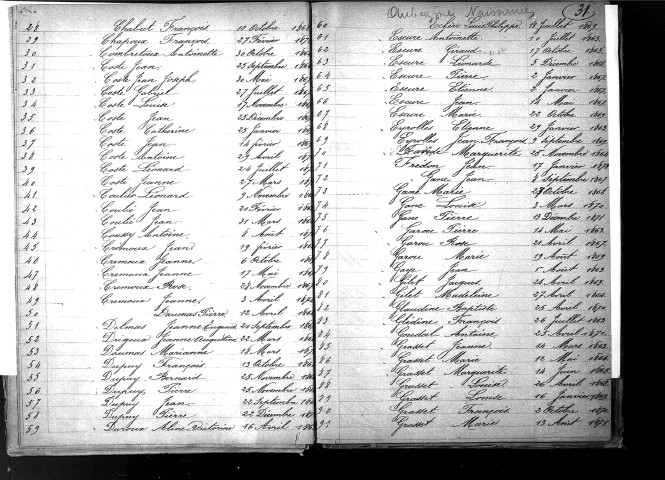 28 Chabut François 10 Octobre
29 Chapoux François 27 Février
30 Combretoux Antoinette 30 Octobre
31 Coste Jean 25 Septembre
32 Coste Jean Joseph 30 Mai
33 Coste Gabriel 27 Juillet
34 Coste Louise 17 Novembre
35 Coste Jean 25 Décembre
36 Coste Catherine 25 Janvier
37 Coste Jean 14 Février
38 Coste Antoine 29 Avril
39 Coste Léonard 24 Juillet
40 Coste Jeanne 27 Mars
41 Léonard 9 Novembre
42 Coulié Jean 20 Février
43 Coulié Jean 31 Mars
44 Coussy Antoine 8 Août
45 Cremoux Jean 19 Février
46 Cremoux Jeanne 6 Octobre
47 Cremoux Jeanne 17 Mai
48 Cremoux Rose 28 Novembre
49 Cremoux Jeanne 3 Avril
50 Daumas Pierre 12 Avril
51 Delmas Jeanne 20 Septembre
52 Jeanne 22 Mars
53 Daumas Marianne 18 Mars
54 Dupuy François 13 Octobre
55 Dupuy Bernard 25 Novembre
56 Dupuy Pierre 25 Novembre
57 Dupuy Jean 22 Septembre
58 Dupuy Pierre 22 Décembre
59 Duroux Aline Victorine 16 Avril
Naissances 31
60 Louis Philippe 18 Juillet 1869
61 Escure Antoinette 10 Juillet 1863
62 Escure Giraud 17 Octobre 1865
63 Escure Léonarde 5 Décembre
64 Escure Pierre 2 Janvier 1867
65 Escure Etienne 2 Janvier
66 Escure Jean 14 Mai
67 Escure Marie 22 Octobre 1869
68 Eyrolles Etienne 29 Janvier 1863
69 Eyrolles Jean François 3 Septembre 1869
70 Marguerite 25 Novembre 1864
71 Fredon Jean 17 Janvier
72 Gane Jean Septembre
73 Gane Marie 27 Octobre 1868
74 Gane Louise 3 Mars 1870
75 Gane Pierre 13 Décembre 1871
76 Garou Pierre 14 Mai 1863
77 Garou Rose 20 Avril 1867
78 Garou Marie 19 Août 1869
79 Gaye Jean 1 Août 1863
80 Gilet Jacques 26 Avril 1863
81 Gilet Madeleine 27 Avril
82 Glaudine Baptiste 25 Avril 1870
83 Glédine François 26 Juillet
84 Antoine 23 Avril 1870
85 Grasset Jeanne 14 Mars 1863
86 Grasset Marie 12 Mai 1864
87 Grasset Marguerite 14 Juin
88 Grasset Louise 26 Avril
89 Grasset Louise 16 Janvier 1869
90 Grasset François 2 Octobre 1870
91 Grasset Marie 13 Août 1871